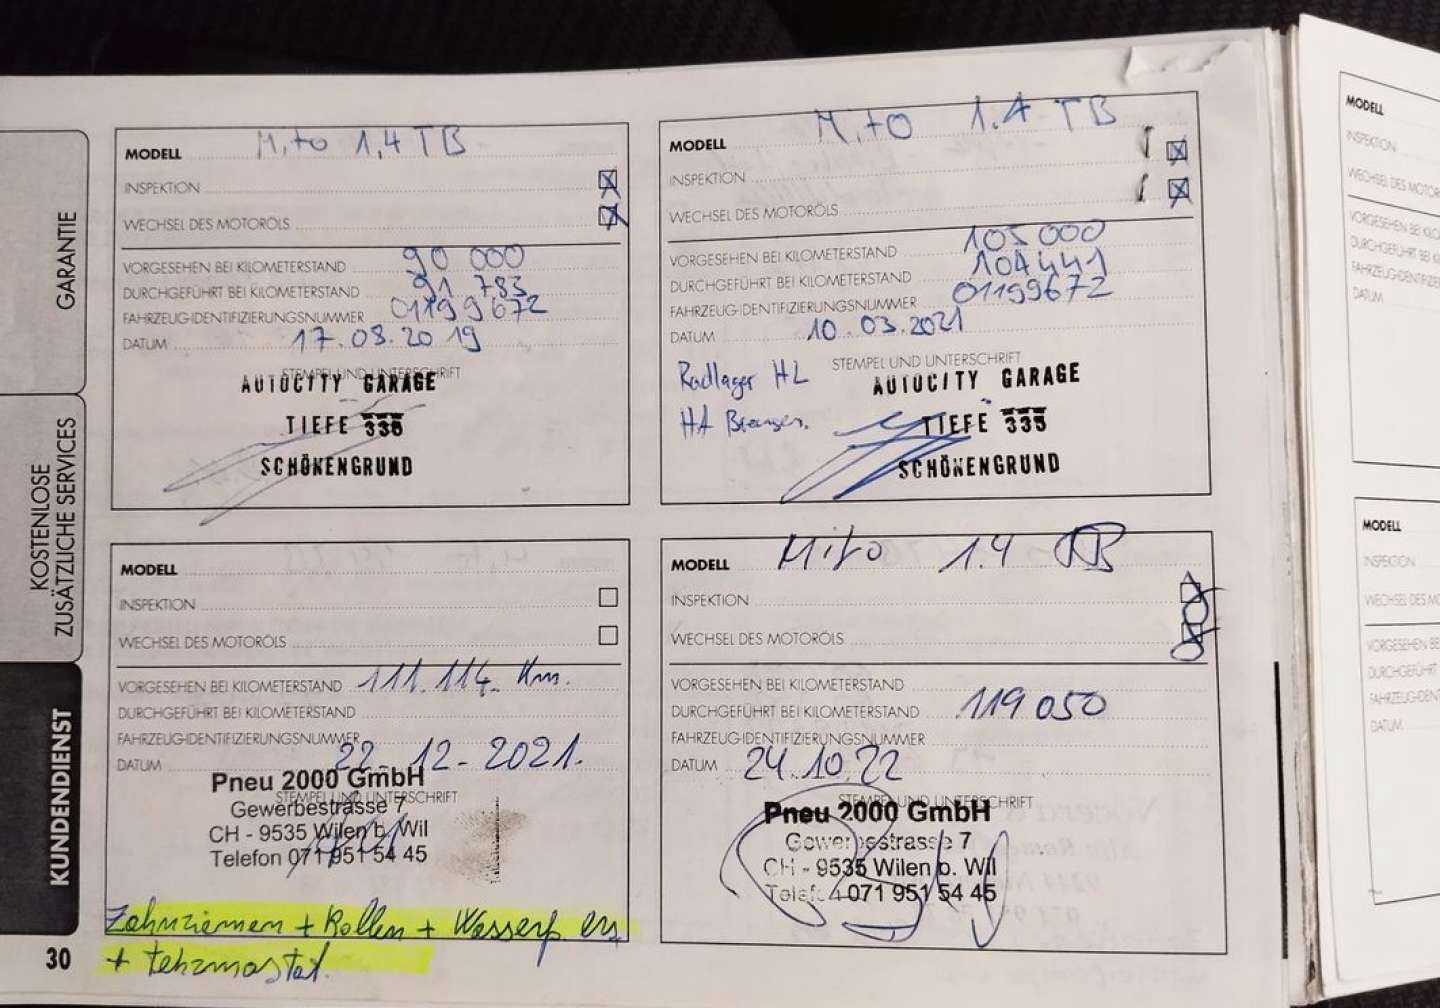 GARANTIE
KOSTENLOSE
ZUSÄTZLICHE SERVICES
KUNDENDIENST
30
MODELL Mito 1,4 TB
INSPEKTION
WECHSEL DES MOTORÖLS
VORGESEHEN BEI KILOMETERSTAND 90 000
DURCHGEFÜHRT BEI KILOMETERSTAND 91 783
FAHRZEUG-IDENTIFIZIERUNGSNUMMER 01199672
DATUM 17.08.2019
STEMPEL UND UNTERSCHRIFT
AUTOCITY GARAGE
TIEFE 335
SCHÖNENGRUND
MODELL Mito 1.4 TB
INSPEKTION
WECHSEL DES MOTORÖLS
VORGESEHEN BEI KILOMETERSTAND 105 000
DURCHGEFÜHRT BEI KILOMETERSTAND 104441
FAHRZEUG-IDENTIFIZIERUNGSNUMMER 01199672
DATUM 10.03.2021
STEMPEL UND UNTERSCHRIFT
Radlager HL
HA Bremsen.
AUTOCITY GARAGE
TIEFE 335
SCHÖNENGRUND
MODELL
INSPEKTION
WECHSEL DES MOTORÖLS
VORGESEHEN BEI KILOMETERSTAND 111.114 Km.
DURCHGEFÜHRT BEI KILOMETERSTAND
FAHRZEUG-IDENTIFIZIERUNGSNUMMER
DATUM 22-12-2021.
STEMPEL UND UNTERSCHRIFT
Pneu 2000 GmbH
Gewerbestrasse 7
CH - 9535 Wilen b. Wil
Telefon 071 951 54 45
Zahnriemen + Rollen + Wasserp.
+ tehrmostat.
MODELL Mito 1.4 TB
INSPEKTION
WECHSEL DES MOTORÖLS
VORGESEHEN BEI KILOMETERSTAND
DURCHGEFÜHRT BEI KILOMETERSTAND 119 050
FAHRZEUG-IDENTIFIZIERUNGSNUMMER
DATUM 24.10.22
STEMPEL UND UNTERSCHRIFT
Pneu 2000 GmbH
Gewerbestrasse 7
CH - 9535 Wilen b. Wil
071 951 54 45
MODELL
INSPEKTION
DATUM
MODELL
INSPEKTION
DATUM